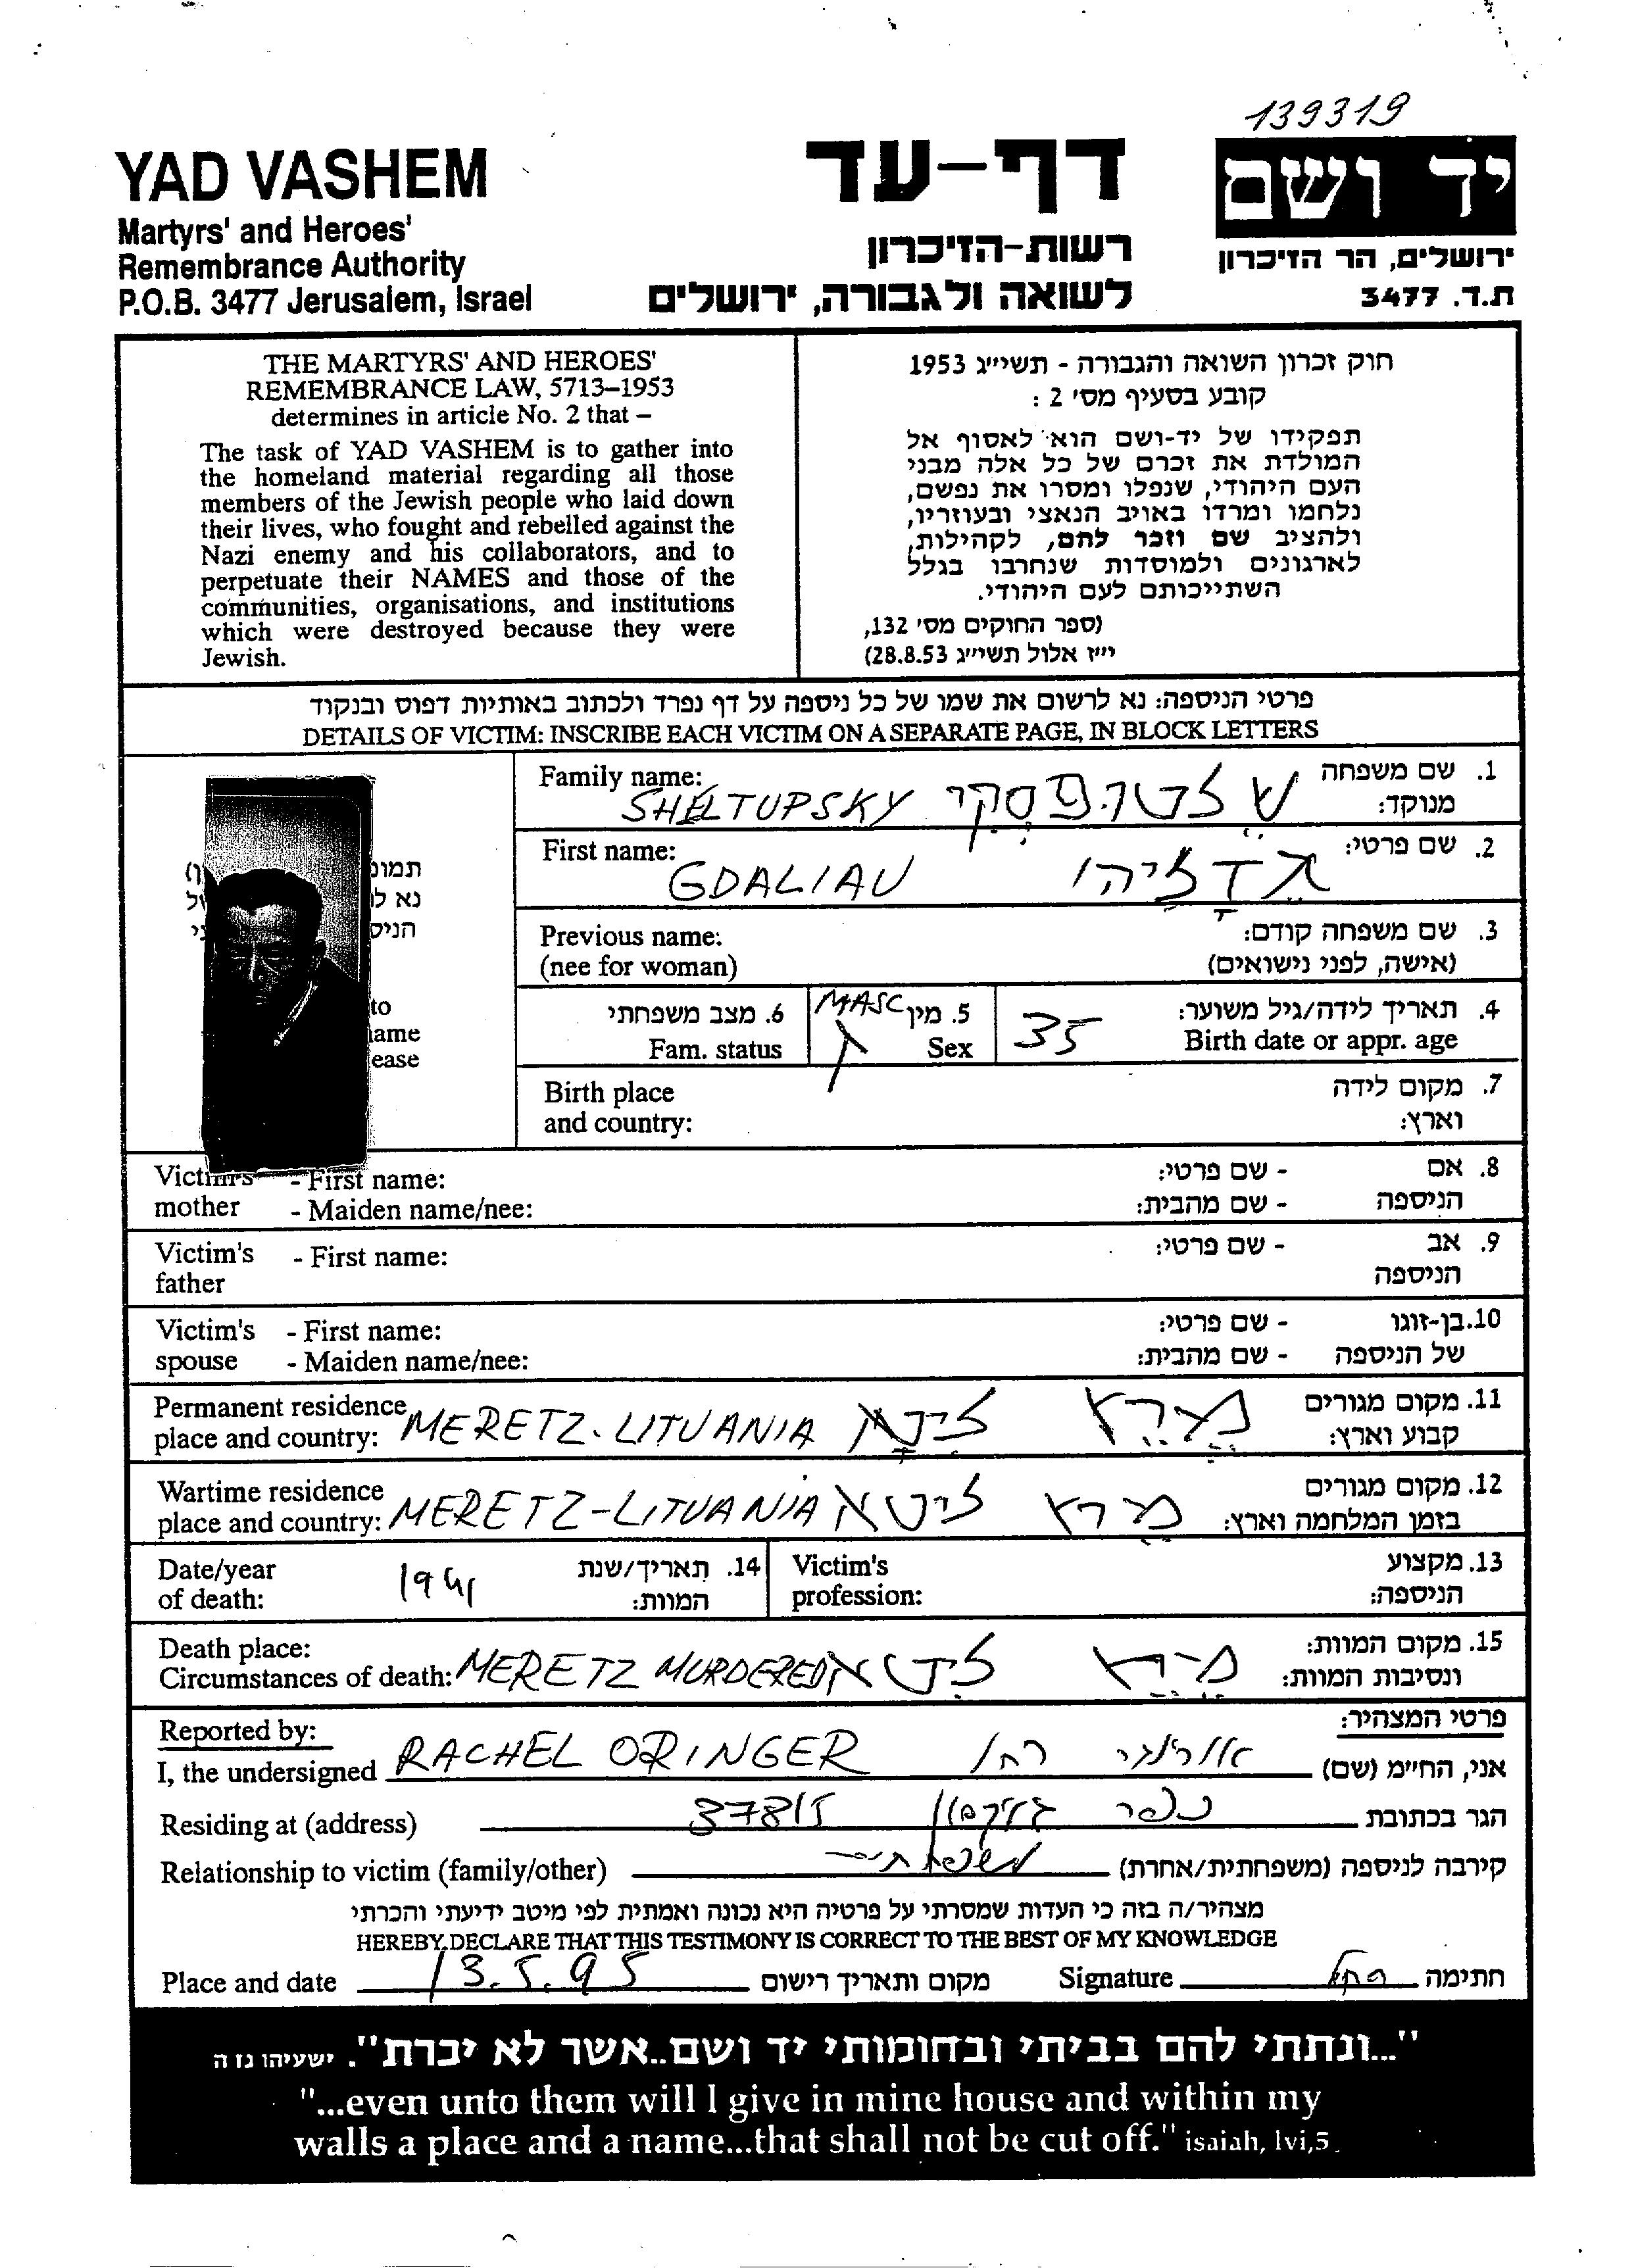 139319
YAD VASHEM
Martyrs' and Heroes'
Remembrance Authority
P.O.B. 3477 Jerusalem, Israel
דף-עד
רשות-הזיכרון
לשואה ולגבורה, ירושלים
יד ושם
ירושלים, הר הזיכרון
ת.ד. 3477
THE MARTYRS' AND HEROES'
REMEMBRANCE LAW, 5713–1953
determines in article No. 2 that –
The task of YAD VASHEM is to gather into
the homeland material regarding all those
members of the Jewish people who laid down
their lives, who fought and rebelled against the
Nazi enemy and his collaborators, and to
perpetuate their NAMES and those of the
communities, organisations, and institutions
which were destroyed because they were
Jewish.
חוק זכרון השואה והגבורה - תשי״ג 1953
קובע בסעיף מס' 2 :
תפקידו של יד-ושם הוא לאסוף אל
המולדת את זכרם של כל אלה מבני
העם היהודי, שנפלו ומסרו את נפשם,
נלחמו ומרדו באויב הנאצי ובעוזריו,
ולהציב שם וזכר להם, לקהילות,
לארגונים ולמוסדות שנחרבו בגלל
השתייכותם לעם היהודי.
(ספר החוקים מס' 132,
י״ז אלול תשי״ג 28.8.53)
פרטי הניספה: נא לרשום את שמו של כל ניספה על דף נפרד ולכתוב באותיות דפוס ובנקוד
DETAILS OF VICTIM: INSCRIBE EACH VICTIM ON A SEPARATE PAGE, IN BLOCK LETTERS
תמונ
נא ל
הניס
to
name
ease
Family name: SHELTUPSKY שלטופסקי 1. שם משפחה
מנוקד:
First name: GDALIAU גדליהו 2. שם פרטי:
Previous name: 3. שם משפחה קודם:
(nee for woman) (אישה, לפני נישואים)
6. מצב משפחתי MASC 5. מין 35 4. תאריך לידה/גיל משוער:
Fam. status ז Sex Birth date or appr. age
Birth place 7. מקום לידה
and country: וארץ:
Victim's - First name: - שם פרטי: 8. אם
mother - Maiden name/nee: - שם מהבית: הניספה
Victim's - First name: - שם פרטי: 9. אב
father הניספה
Victim's - First name: - שם פרטי: 10. בן-זוגו
spouse - Maiden name/nee: - שם מהבית: של הניספה
Permanent residence 11. מקום מגורים
place and country: MERETZ. LITUANIA מרץ ליטא קבוע וארץ:
Wartime residence 12. מקום מגורים
place and country: MERETZ-LITUANIA מרץ ליטא בזמן המלחמה וארץ:
Date/year 1941 14. תאריך/שנת Victim's 13. מקצוע
of death: המוות: profession: הניספה:
Death place: 15. מקום המוות:
Circumstances of death: MERETZ MURDERED מרץ ליטא ונסיבות המוות:
Reported by: פרטי המצהיר:
I, the undersigned RACHEL ORINGER אורינגר רחל אני, החיימ (שם)
Residing at (address) 37815 כפר גליקסון הגר בכתובת
Relationship to victim (family/other) משפחתית קירבה לניספה (משפחתית/אחרת)
מצהיר/ה בזה כי העדות שמסרתי על פרטיה היא נכונה ואמתית לפי מיטב ידיעתי והכרתי
HEREBY DECLARE THAT THIS TESTIMONY IS CORRECT TO THE BEST OF MY KNOWLEDGE
Place and date 13.5.95 מקום ותאריך רישום Signature רחל חתימה
"...ונתתי להם בביתי ובחומותי יד ושם..אשר לא יכרת". ישעיהו נז ה
"...even unto them will I give in mine house and within my
walls a place and a name...that shall not be cut off." isaiah, lvi,5.